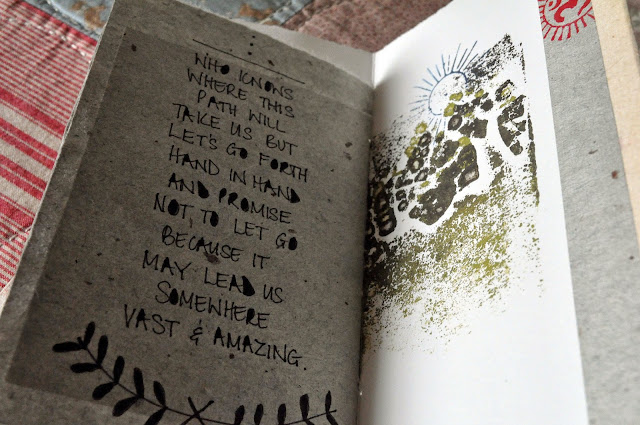 WHO KNOWS
WHERE THIS
PATH WILL
TAKE US BUT
LET'S GO FORTH
HAND IN HAND
AND PROMISE
NOT TO LET GO
BECAUSE IT
MAY LEAD US
SOMEWHERE
VAST & AMAZING.